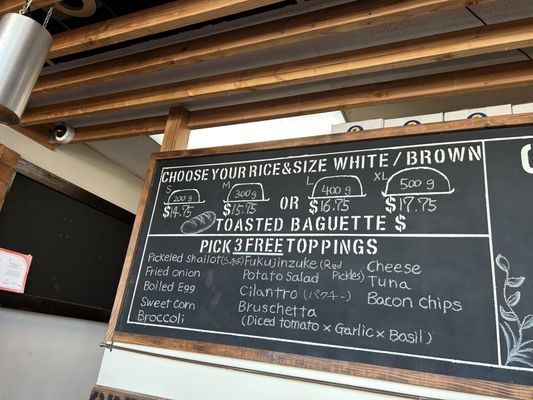 CHOOSE YOUR RICE&SIZE WHITE/BROWN
S M L XL
200g 300g 400g 500g
$14.75 $15.75 OR $16.75 $17.75
TOASTED BAGUETTE $
PICK 3 FREE TOPPINGS
Pickeled shallot Fukujinzuke (Red Pickles) Cheese
Fried onion Potato Salad Tuna
Boiled Egg Cilantro (パクチー) Bacon chips
Sweet corn Bruschetta
Broccoli (Diced tomato × Garlic × Basil)